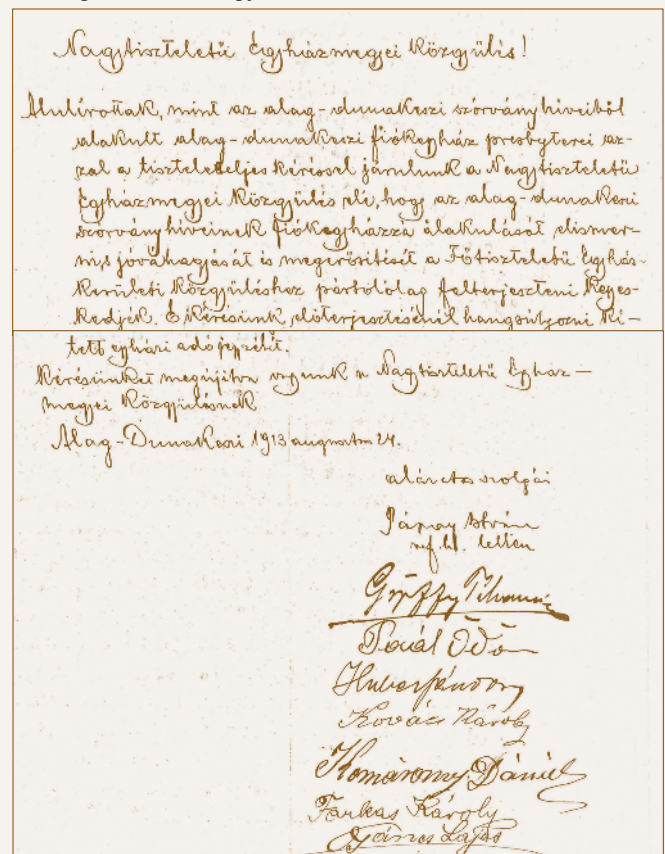 Nagytiszteletű Egyházmegyei Közgyűlés!
Alulírottak, mint az alag-dunakeszi szórványhíveiből
alakult alag-dunakeszi fiókegyház presbyterei az-
zal a tiszteletteljes kéréssel járulunk a Nagytiszteletű
Egyházmegyei Közgyűlés elé, hogy az alag-dunakeszi
szórványhíveinek fiókegyházzá átakulását elismer-
ni, s jóváhagyását is megerősítését a Főtiszteletű Egyház-
kerületi Közgyűléshez pártolólag felterjeszteni kegyes-
kedjék. E kérésünk előterjesztésénél hangsúlyozni kí-
tett egyházi adófejzetét.
Kérésünket megújítva vagyunk a Nagytiszteletű Egyház-
megyei Közgyűlésnek
Alag-Dunakeszi 1913 augusztus 24.
alázatos szolgái
István
ref.
Győffy
Ödön
Huber Sándor
Kovács Károly
Komáromy Dániel
Farkas Károly
Lajos